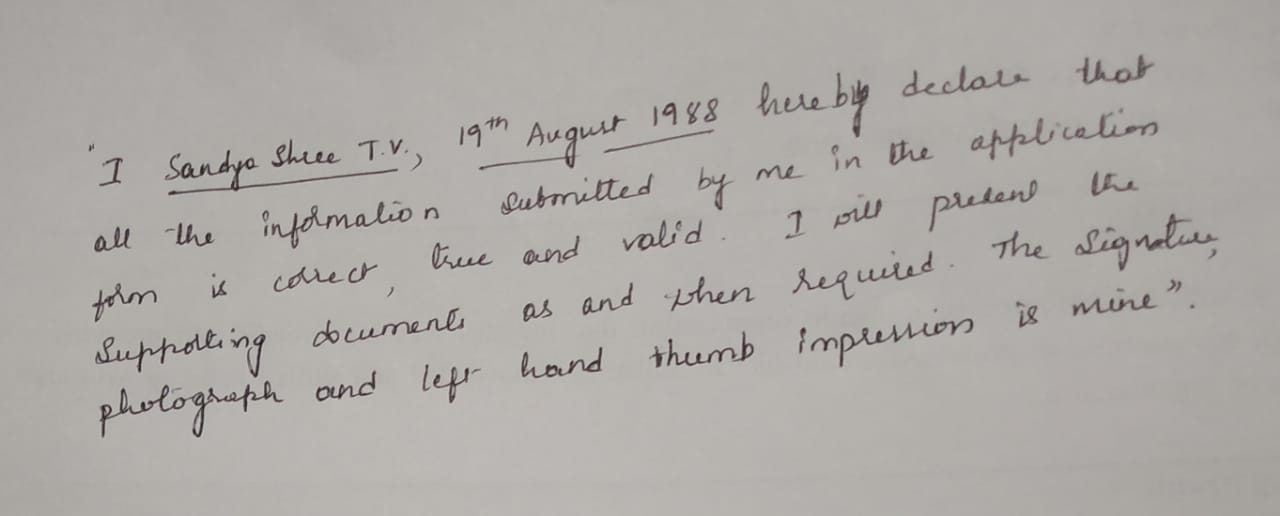 "I Sandya Shree T.V., 19th August 1988 hereby declare that
all the information submitted by me in the application
form is correct, true and valid. I will present the
Supporting documents as and when required. The Signature,
photograph and left hand thumb impression is mine".